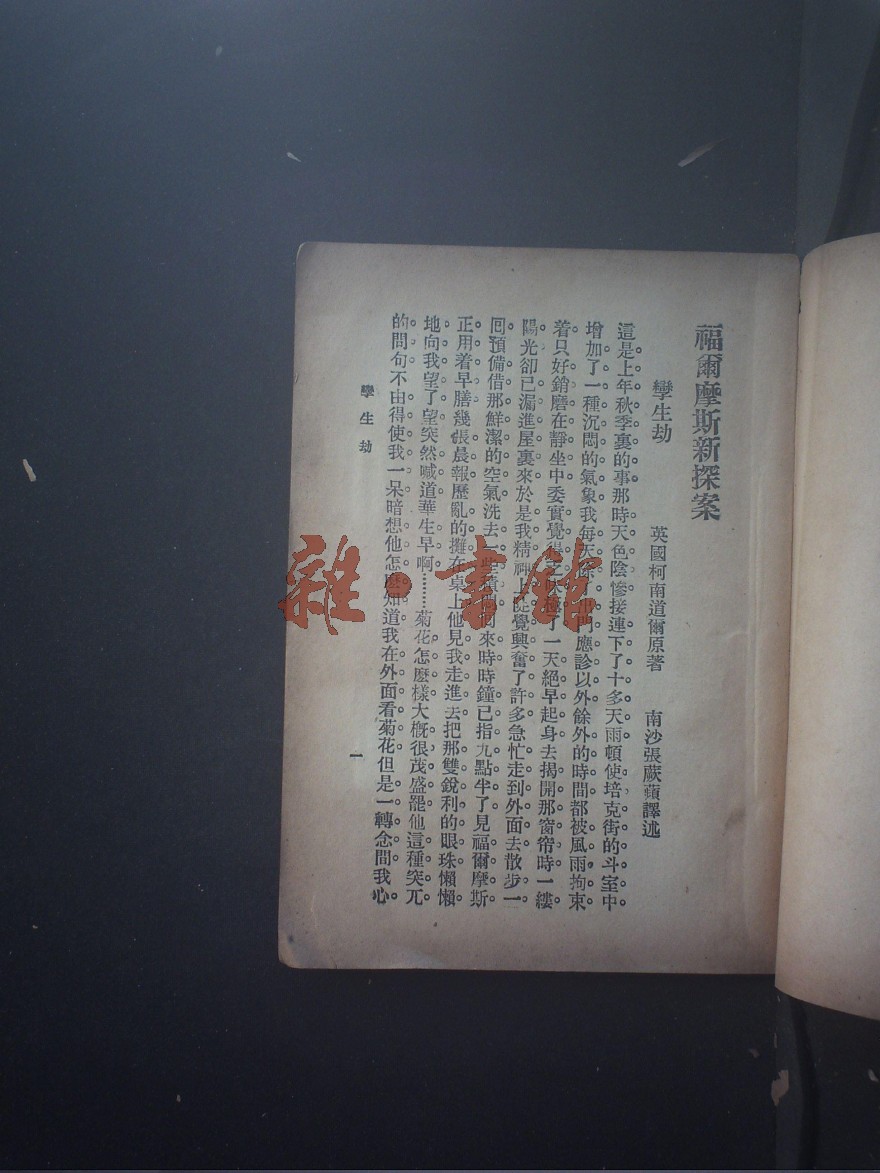 福爾摩斯新探案
孿生劫 英國柯南道爾原著 南沙張蕨蘋譯述
這是上年秋季裏的事那時天色陰慘接連下了十多天雨頓使培克街的斗室中
增加了一種沉悶的氣象我每天除了出門應診以外餘外的時間都被風雨拘束
着只好銷磨在靜坐中委實覺得 了一天絕早起身去揭開那窗帘時一縷
陽光卻已漏進屋裏來於是我精神上 覺興奮了許多急忙走到外面去散步一
囘預備借那鮮潔的空氣洗去一些積 回來時時鐘已指九點半了見福爾摩斯
正用着早膳幾張晨報歷亂的攤在桌上他見我走進去把那雙銳利的眼珠懶懶
地向我望了望突然喊道華生早啊………菊花怎麽樣大概很茂盛罷他這種突兀
的問句不由得使我一呆暗想他怎麽知道我在外面看菊花但是一轉念間我心
孿生劫
一
雜·書館